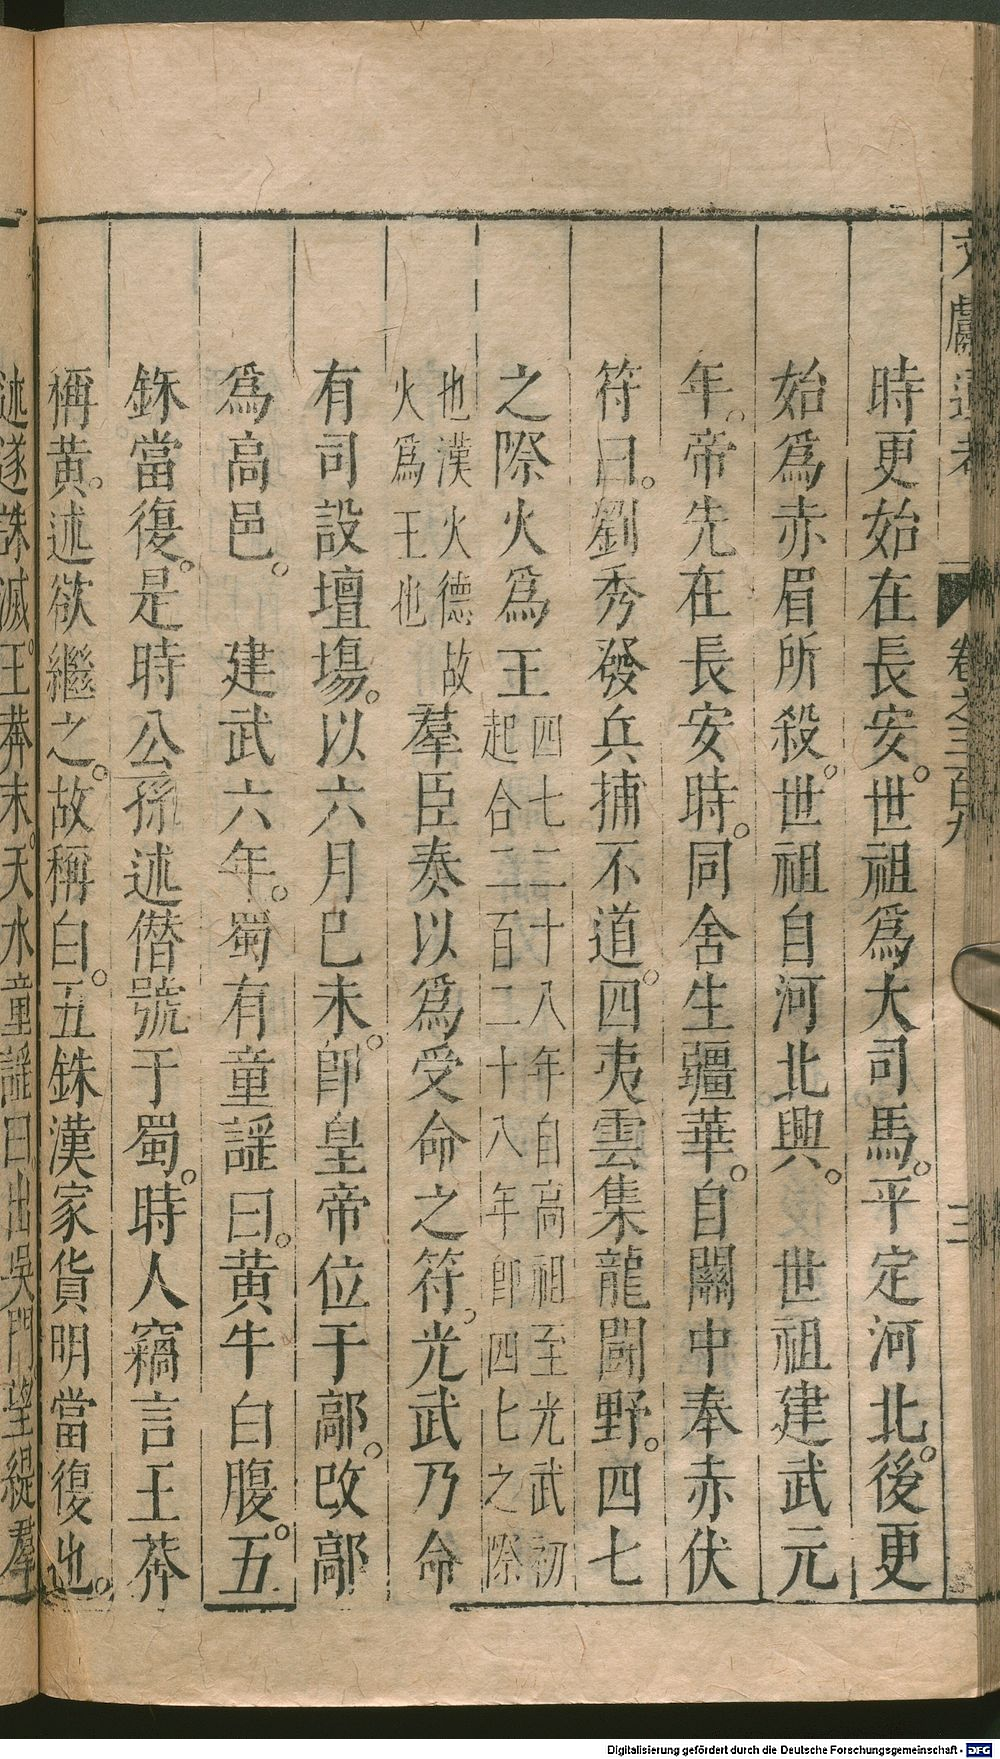 文獻通考 卷之三百九 三
時更始在長安。世祖爲大司馬。平定河北。後更
始爲赤眉所殺。世祖自河北興。後世祖建武元
年。帝先在長安時。同舍生疆華。自關中奉赤伏
符曰。劉秀發兵捕不道。四夷雲集龍鬭野。四七
之際火爲王四七二十八年自高祖至光武初
起合二百二十八年卽四七之際
也漢火德故
火爲王也羣臣奏以爲受命之符。光武乃命
有司設壇場。以六月巳未。卽皇帝位于鄗。改鄗
爲高邑。 建武六年。蜀有童謡曰。黄牛白腹。五
銖當復。是時公孫述僭號于蜀。時人竊言王莽
稱黄。述欲繼之。故稱白。五銖漢家貨明當復也。
述遂誅滅。王莽末。天水童謡曰出吳門望緹羣
Digitalisierung gefördert durch die Deutsche Forschungsgemeinschaft - DFG